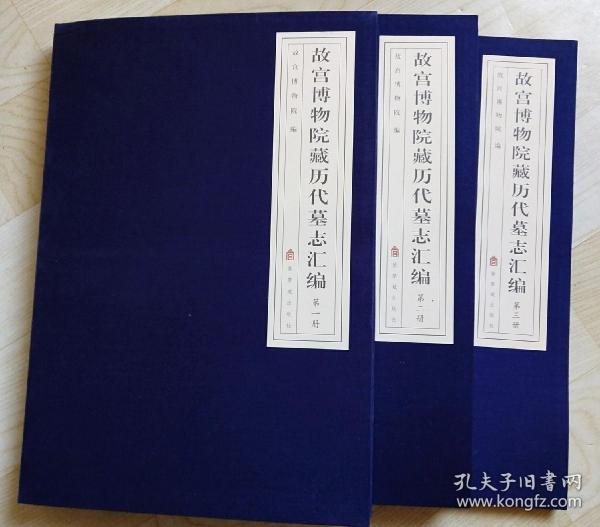 故宫博物院藏历代墓志汇编
第一册
故宫博物院 编
紫禁城出版社
故宫博物院藏历代墓志汇编
第二册
故宫博物院 编
紫禁城出版社
故宫博物院藏历代墓志汇编
第三册
故宫博物院 编
紫禁城出版社
孔夫子旧书网
www.kongfz.com